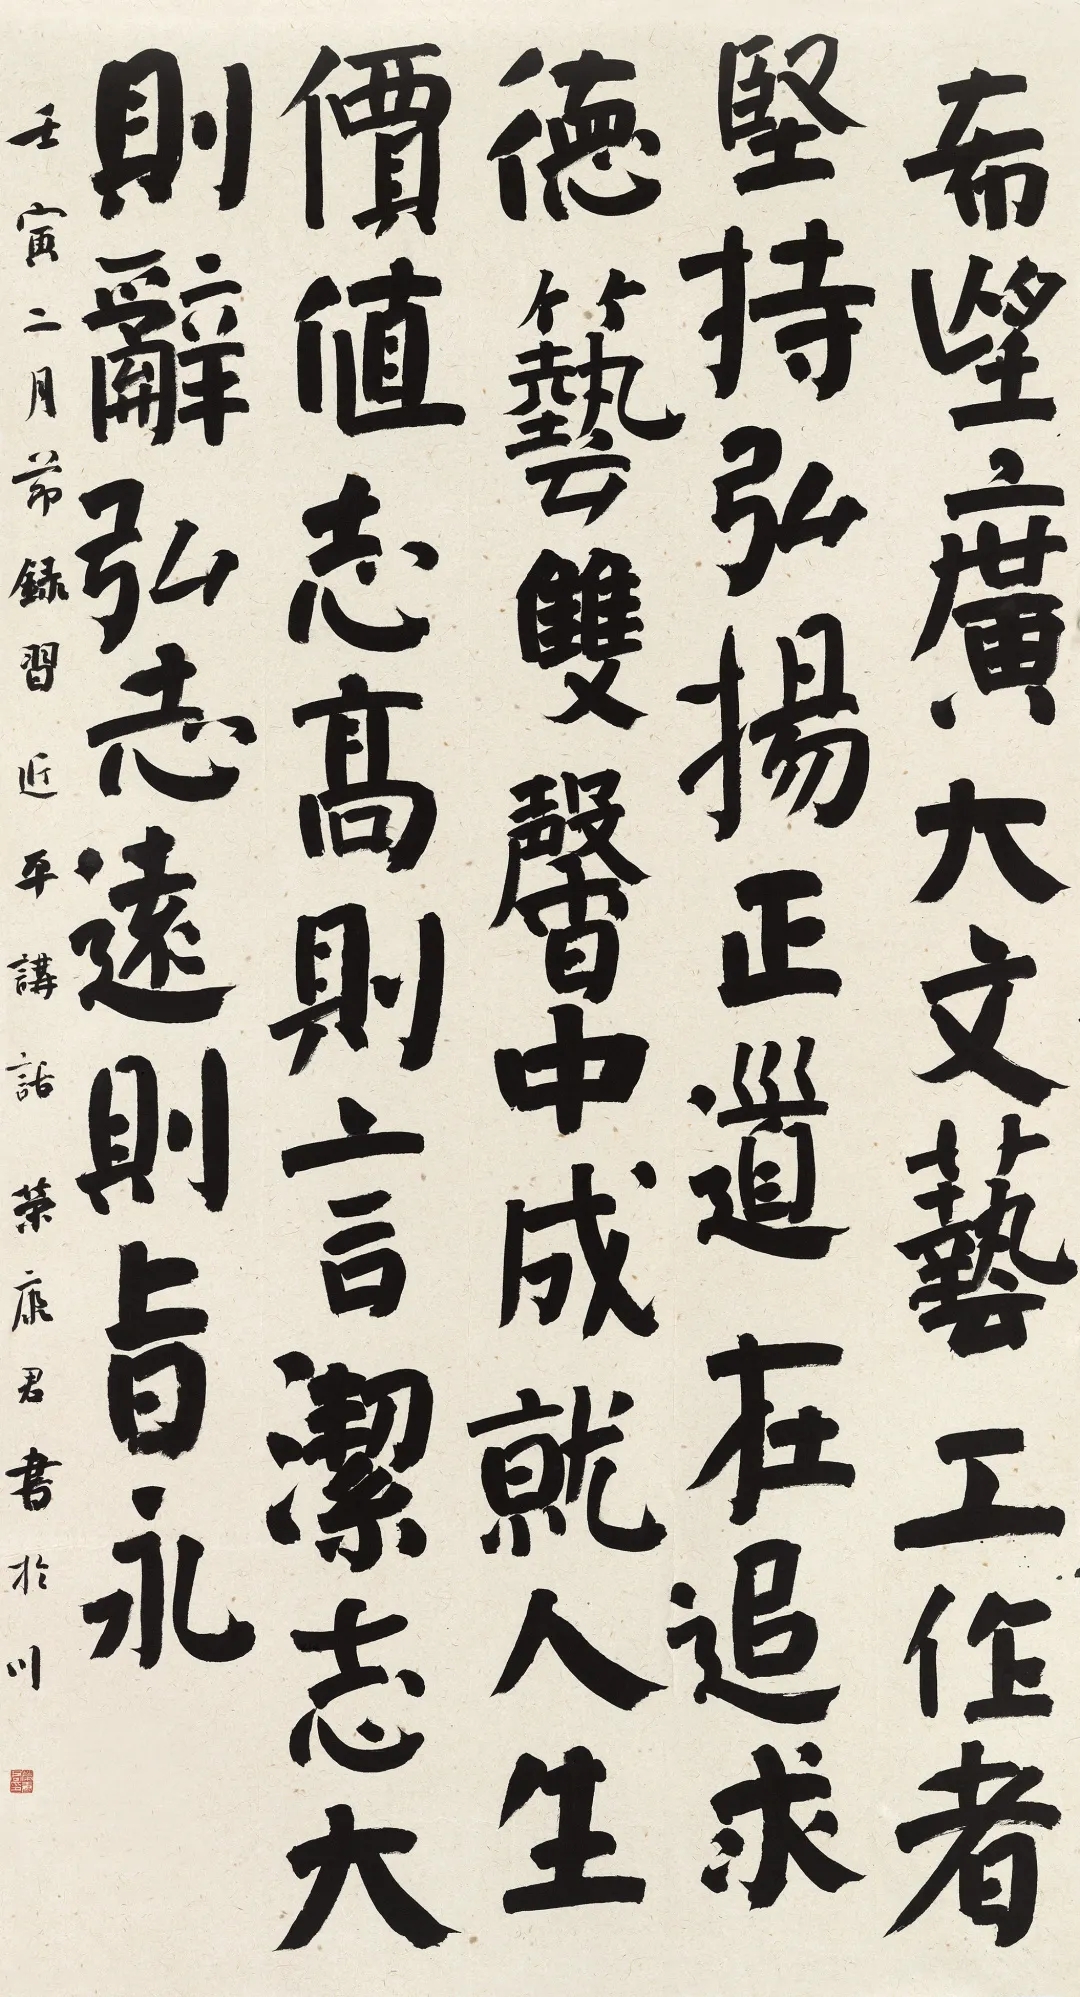 希望廣大文藝工作者
堅持弘揚正道在追求
德藝雙馨中成就人生
價值志高則言潔志大
則辭弘志遠則旨永
壬寅二月節録習近平講話榮康君書於川